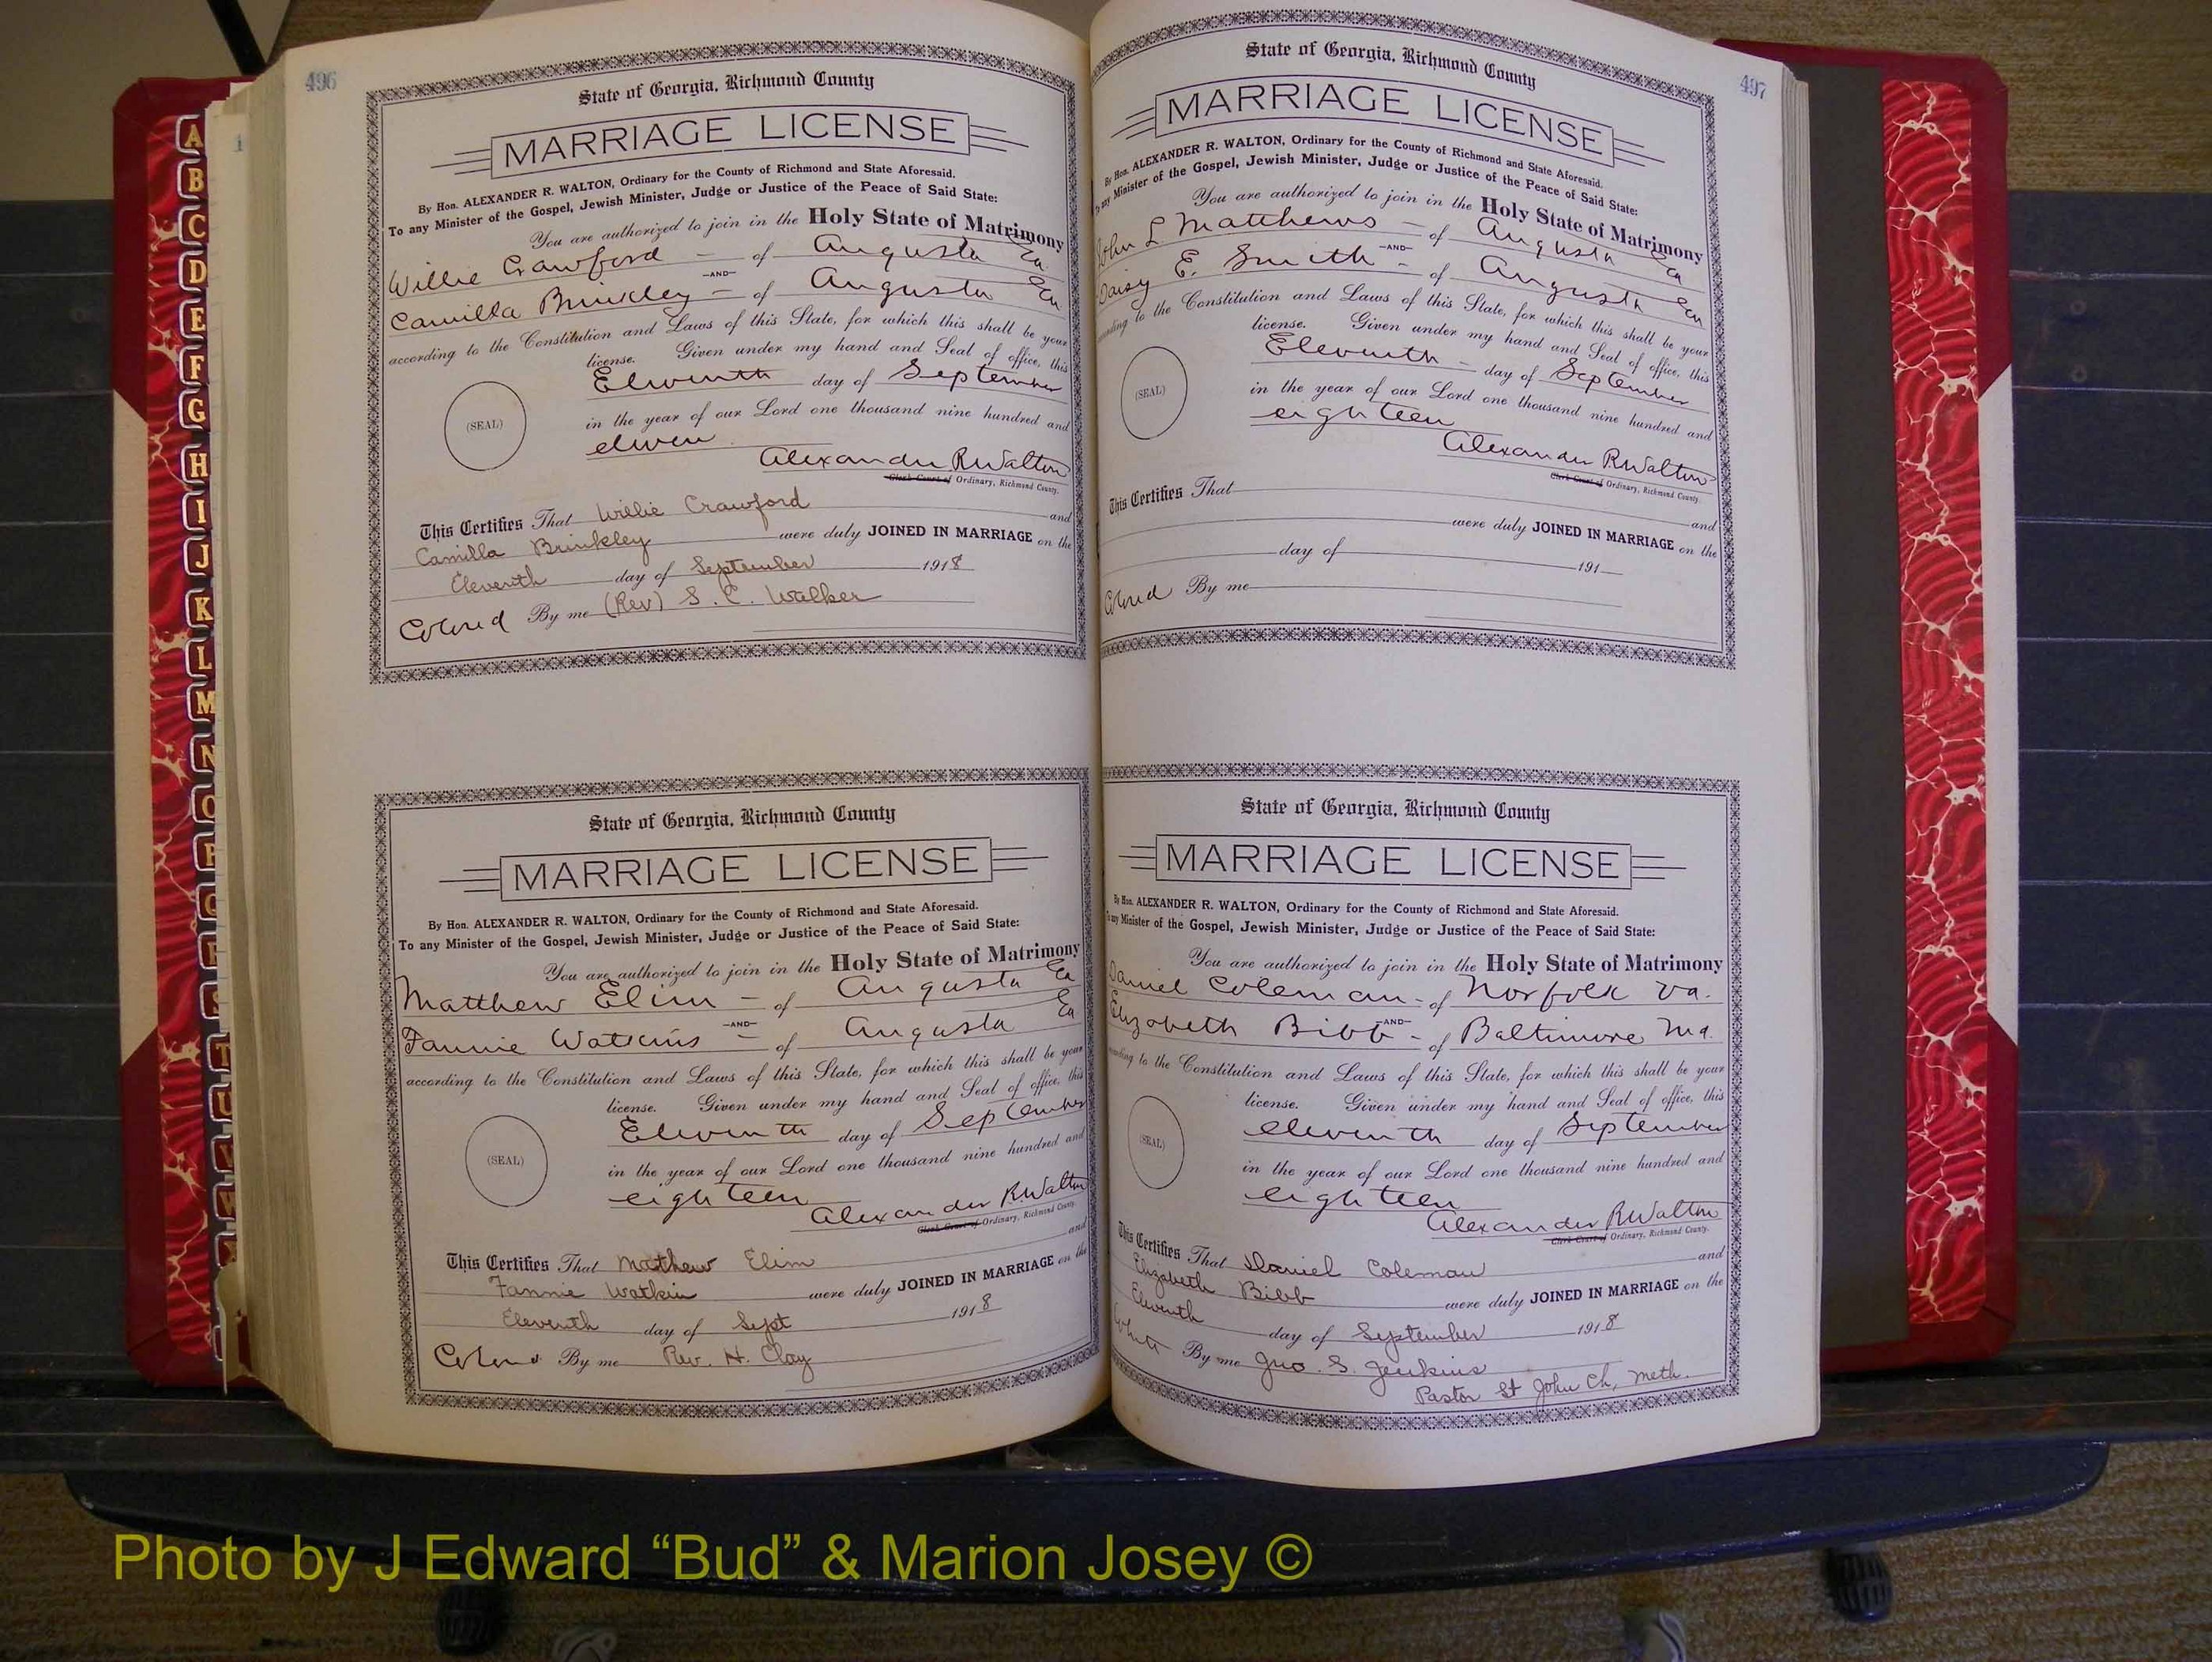 496
State of Georgia, Richmond County
MARRIAGE LICENSE
By Hon. ALEXANDER R. WALTON, Ordinary for the County of Richmond and State Aforesaid.
To any Minister of the Gospel, Jewish Minister, Judge or Justice of the Peace of Said State:
You are authorized to join in the Holy State of Matrimony
Willie Crawford – of Augusta Ga
—AND—
Camilla Brinkley – of Augusta Ga
according to the Constitution and Laws of this State, for which this shall be your
license. Given under my hand and Seal of office, this
Eleventh day of September
(SEAL)
in the year of our Lord one thousand nine hundred and
eleven
Alexander R Walton
Clerk Court of Ordinary, Richmond County.
This Certifies That Willie Crawford and
Camilla Brinkley were duly JOINED IN MARRIAGE on the
Eleventh day of September 1918
Colored By me (Rev) S. C. Walker
State of Georgia, Richmond County
MARRIAGE LICENSE
By Hon. ALEXANDER R. WALTON, Ordinary for the County of Richmond and State Aforesaid.
To any Minister of the Gospel, Jewish Minister, Judge or Justice of the Peace of Said State:
You are authorized to join in the Holy State of Matrimony
Matthew Elim – of Augusta Ga
—AND—
Fannie Watkins – of Augusta Ga
according to the Constitution and Laws of this State, for which this shall be your
license. Given under my hand and Seal of office, this
Eleventh day of September
(SEAL)
in the year of our Lord one thousand nine hundred and
eighteen
Alexander R Walton
Clerk Court of Ordinary, Richmond County.
This Certifies That Matthew Elim and
Fannie Watkin were duly JOINED IN MARRIAGE on the
Eleventh day of Sept 1918
Colored By me Rev. H. Clay
497
State of Georgia, Richmond County
MARRIAGE LICENSE
By Hon. ALEXANDER R. WALTON, Ordinary for the County of Richmond and State Aforesaid.
To any Minister of the Gospel, Jewish Minister, Judge or Justice of the Peace of Said State:
You are authorized to join in the Holy State of Matrimony
John L. Matthews – of Augusta Ga
—AND—
Daisy E. Smith – of Augusta Ga
according to the Constitution and Laws of this State, for which this shall be your
license. Given under my hand and Seal of office, this
Eleventh – day of September
(SEAL)
in the year of our Lord one thousand nine hundred and
eighteen
Alexander R Walton
Clerk Court of Ordinary, Richmond County.
This Certifies That and
were duly JOINED IN MARRIAGE on the
day of 191
Colored By me
State of Georgia, Richmond County
MARRIAGE LICENSE
By Hon. ALEXANDER R. WALTON, Ordinary for the County of Richmond and State Aforesaid.
To any Minister of the Gospel, Jewish Minister, Judge or Justice of the Peace of Said State:
You are authorized to join in the Holy State of Matrimony
Daniel Coleman – of Norfolk Va.
—AND—
Elizabeth Bibb – of Baltimore Md.
according to the Constitution and Laws of this State, for which this shall be your
license. Given under my hand and Seal of office, this
eleventh day of September
(SEAL)
in the year of our Lord one thousand nine hundred and
eighteen
Alexander R Walton
Clerk Court of Ordinary, Richmond County.
This Certifies That Daniel Coleman and
Elizabeth Bibb were duly JOINED IN MARRIAGE on the
Eleventh day of September 1918
White By me Jno. S. Jenkins
Pastor St John Ch, Meth.
A
B
C
D
E
F
G
H
I
J
K
L
M
N
O
P
Q
R
S
T
U
V
W
Photo by J Edward “Bud” & Marion Josey ©